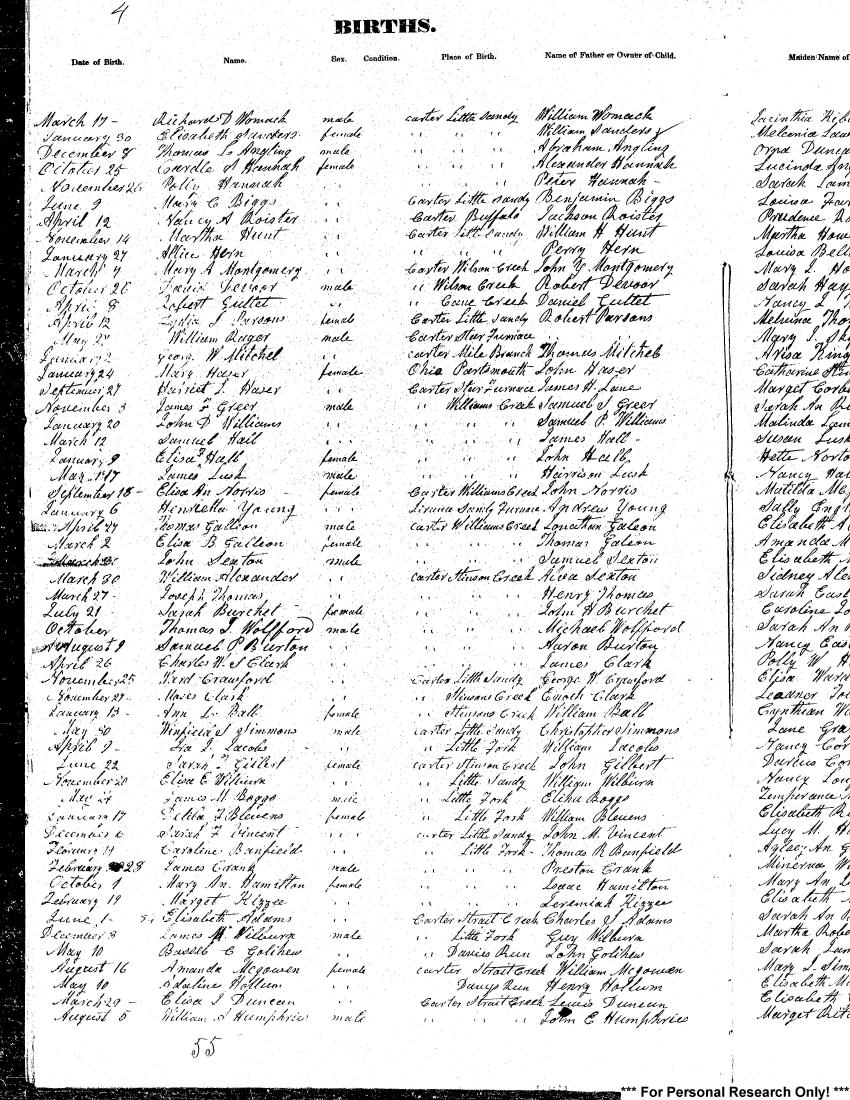 4
BIRTHS.
Date of Birth. Name. Sex. Condition. Place of Birth. Name of Father or Owner of Child. Maiden Name of
March 17 - Richard D Womack male carter Little Sandy William Womack
January 30 Elisabeth Sanders female " " " William Sanders
December 8 Thomas L Angling male " " " Abraham Angling
October 25 Cardle S Hannah female " " " Alexander Hannah Lucinda
November 26 Polly Hannah " " " " " Peter Hannah - Sarah
June 9 Mary C Biggs " " Carter Little Sandy Benjamin Biggs Louisa
April 12 Nancy A Roister " " Carter Buffalo Jackson Roister Prudence
November 14 Martha Hunt " " Carter Little Sandy William H Hunt Martha
January 27 Allice Hern " " " " " Perry Hern Louisa
March 7 Mary A Montgomery " " Carter Wilson Creek John Y Montgomery Mary
October 26 Devoor male " Wilson Creek Robert Devoor Sarah
April 8 Robert Gullet " " " Cane Creek Daniel Gullet Nancy
April 12 Lydia J Parsons female Carter Little Sandy Robert Parsons
May 27 William Ruger male Carter Star Furnace Mary
January 2 George W Mitchel " " carter Mile Branch Thomas Mitchel
January 24 Mary Haser female Ohio Portsmouth John Haser Catharine
September 27 Harriet J. Haser " " Carter Star Furnace James H. Lane Marget
November 3 James F Greer male " Williams Creek Samuel S Greer Sarah An
January 20 John D Williams " " " " " Samuel P. Williams Malinda
March 12 Samuel Hail " " " " " James Hall - Susan Lusk
January 9 Elisa Hall female " " " John Hall Hete
May 17 James Lusk male " " " Harrison Lusk Nancy
September 18 - Elisa An Norris - female Carter Williams Creek John Norris Matilda
January 6 Henrietta Young " " Sandy Furnace Andrew Young Sally
April 27 Thomas Galleon male carter Williams Creek Jonathan Galeon Elisabeth
March 2 Elisa B Galleon female " " " Thomas Galeon Amanda
John Sexton male " " " Samuel Sexton Elisabeth
March 30 William Alexander " " carter Stinson Creek Alva Sexton Sidney
March 27 - Joseph Thomas " " " " " Henry Thomas Sarah
July 21 - Sarah Burchet female " " " John H Burchet Caroline
October Thomas J. Wolfford male " " " Michael Wolfford Sarah An
August 9 Samuel P Burton " " " " " Aaron Burton Nancy
April 26 Charles W. S Clark " " " " " James Clark Polly W
November 25 Ward Crawford " " Carter Little Sandy George W Crawford Elisa
November 27 - Moses Clark " " " Stinsons Creek Enoch Clark
January 13 - Ann L. Ball female " Stinsons Creek William Ball
May 30 Winfield S Simmons male carter Little Sandy Christopher Simmons Jane
April 9 - Ira J. Jacobs " " " Little Fork William Jacobs Nancy
June 22 Sarah Gilbert female carter Stinson Creek John Gilbert
November 20 Elisa E Wilburn " " " Little Sandy William Wilburn Nancy
May 24 James M. Boggs male " Little Fork Elihu Boggs Temperance
January 17 Delila F Blevens female " Little Fork William Blevens Elisabeth
December 6 Sarah F Vincent " " carter Little Sandy John M. Vincent Lucy M.
February 14 Caroline Banfield " " " Little Fork - Thomas R Banfield
February 28 James Crank male " " " Preston Crank Minerva
October 1 Mary An. Hamilton female " " " Isaac Hamilton Mary An
February 19 Marget Kizzee " " " " " Jeremiah Kizzee Elisabeth
June 1 - Elisabeth Adams " " Carter Strait Creek Charles J Adams Sarah An
December 8 James M Wilburn male " Little Fork Guy Wilburn Martha
May 10 C Golihew " " " Davies Run John Golihew Sarah
August 16 Amanda Mcgowen female carter Strait Creek William Mcgowen Mary J.
May 10 Adaline Hollum " " Davys Run Henry Hollum Elisabeth
March 29 - Elisa J Duncan " " Carter Strait Creek Lewis Duncan Elisabeth
August 5 William S Humphries male " " " John E Humphries Marget
55
*** For Personal Research Only! ***